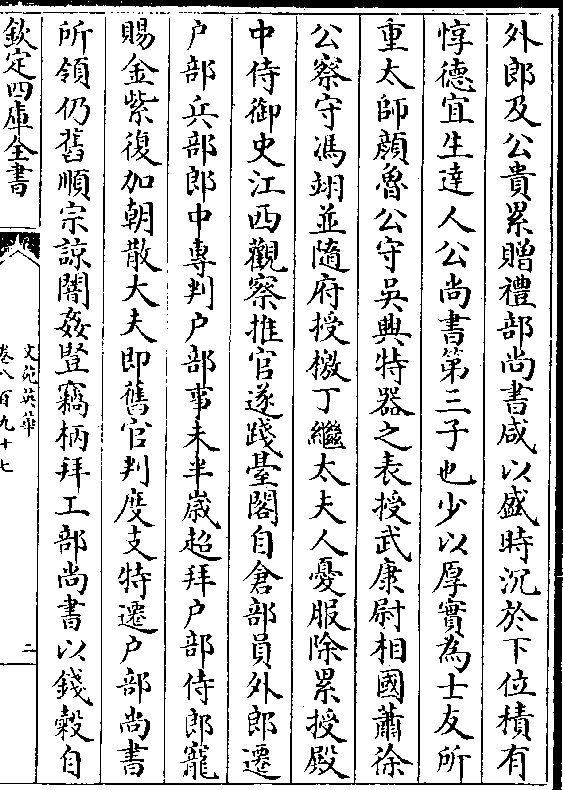 外郎及公貴累贈禮部尚書咸以盛時沉於下位積有
惇德宜生達人公尚書第三子也少以厚實為士友所
重太師顔魯公守吳興特器之表授武康尉相國蕭徐
公察守馮翊並隨府授檄丁繼太夫人憂服除累授殿
中侍御史江西觀察推官遂踐臺閣自倉部員外郎遷
户部兵部郎中專判户部事未半歲超拜户部侍郎寵
賜金紫復加朝散大夫即舊官判度支特遷户部尚書
所領仍舊順宗諒闇姦豎竊柄拜工部尚書以錢糓自
欽定四庫全書
文苑英華
卷八百九十七
二